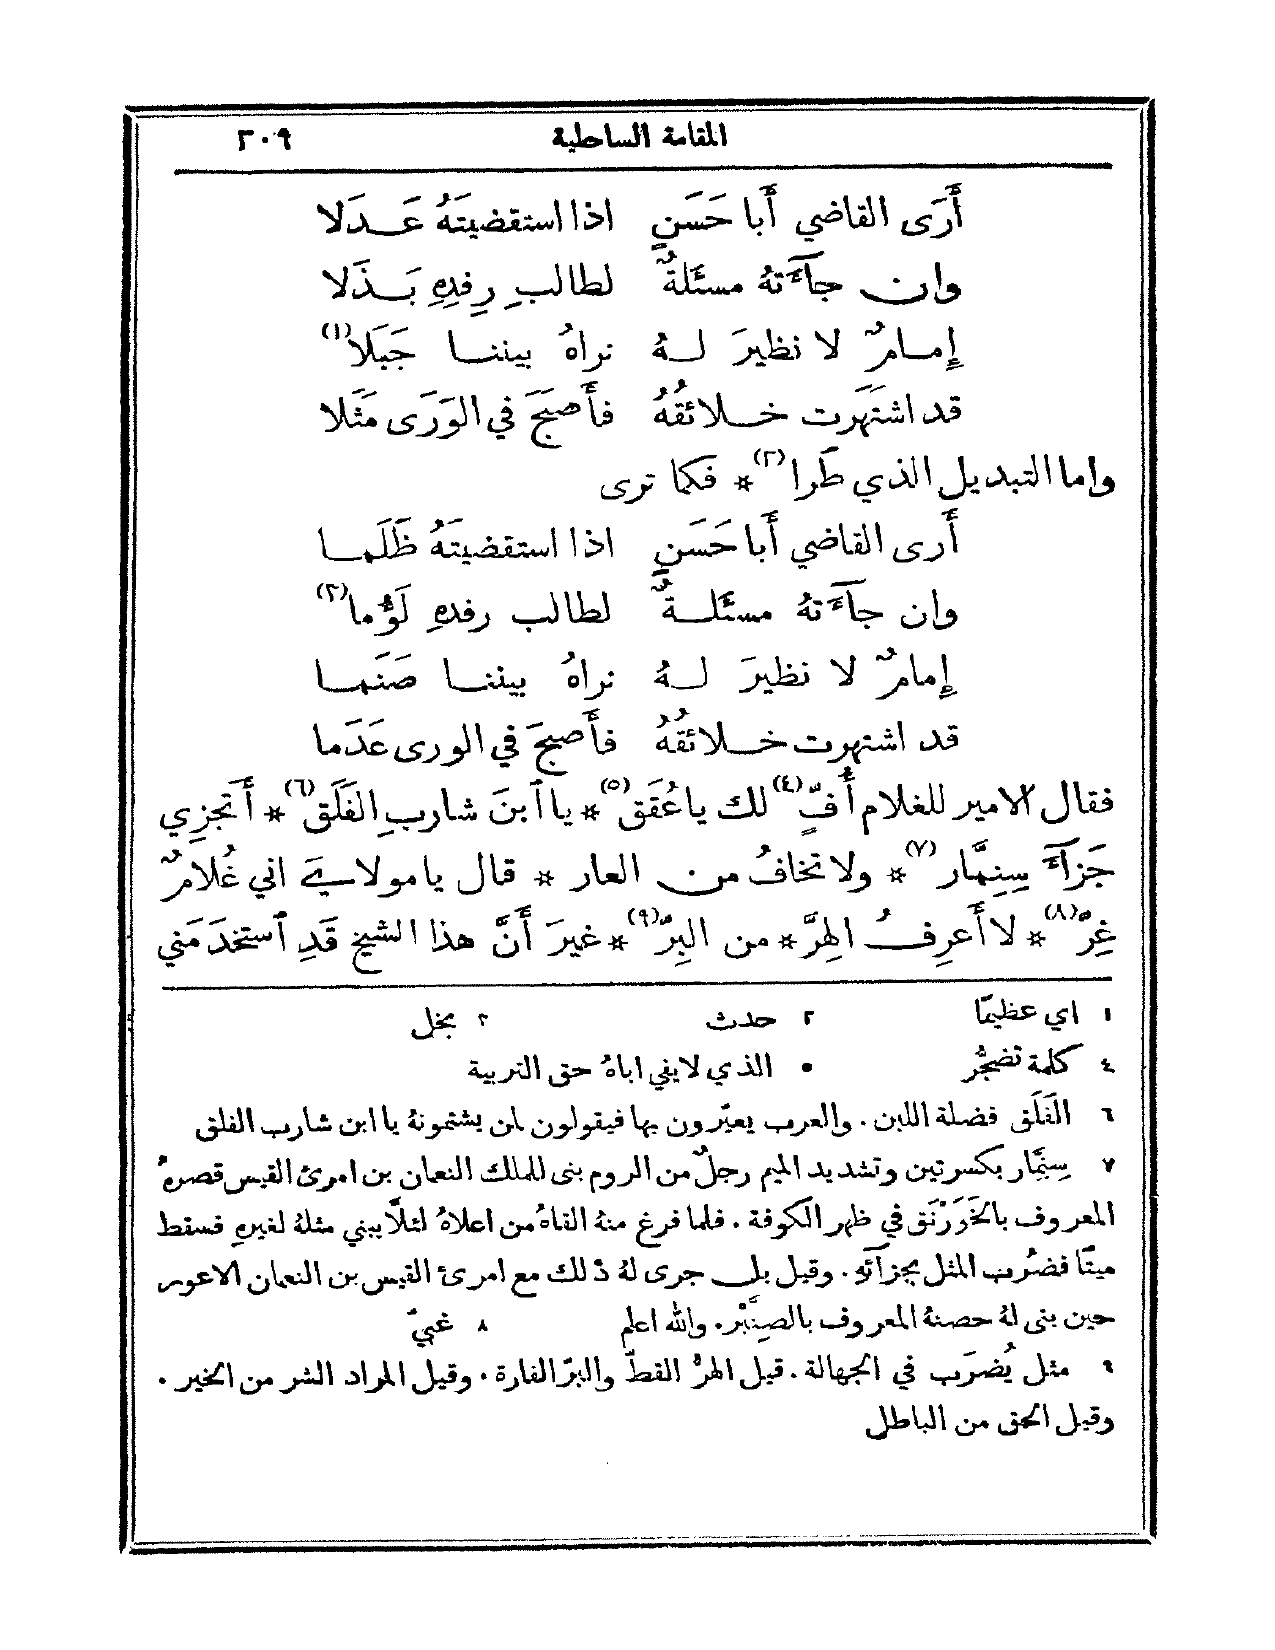 المقامة الساحلية ٣٠٩
أَرَى القاضي أَبا حَسَنٍ اذا استقضيتَهُ عَدَلا
وان جآءَتهُ مسئلةٌ لطالبِ رِفدِهِ بَذَلا
إِمامٌ لا نظيرَ لهُ نراهُ بيننا جَبَلا (١)
قد اشتَهَرت خلائقُهُ فأَصبحَ في الوَرَى مَثَلا
واما التبديل الذي طَرا (٢) * فكما ترى
أَرى القاضي أَبا حَسَنٍ اذا استقضيتَهُ ظَلَما
وان جآءَتهُ مسئلةٌ لطالب رفدهِ لَؤُما (٣)
إِمامٌ لا نظيرَ لهُ نراهُ بيننا صَنَما
قد اشتهرت خلائقُهُ فأَصبحَ في الورى عَدَما
فقال الامير للغلام أُفٍّ (٤) لك ياعُقَق (٥) * يا ٱبنَ شاربِ الفَلَق (٦) * أَتجزِي
جَزآءَ سِنِمَّار (٧) * ولا تخافُ من العار * قال يا مولاي اني غُلامٌ
غِرٌّ (٨) * لا أَعرِفُ الهِرَّ * من البِرّ (٩) * غيرَ أَنَّ هذا الشيخ قَدِ ٱستخدَمَني
١ اي عظيمًا ٢ حدث ٣ بخل
٤ كلمة تضجُّر ٥ الذي لا يفي اباهُ حق التربية
٦ الفَلَق فضلة اللبن. والعرب يعيّرون بها فيقولون لمن يشتمونهُ يا ابن شارب الفلق
٧ سِنِمَّار بكسرتين وتشديد الميم رجلٌ من الروم بنى للملك النعمان بن امرئ القيس قصرهُ
المعروف بالخَوَرْنَق في ظهر الكوفة. فلما فرغ منهُ القاهُ من اعلاهُ لئلَّا يبني مثلهُ لغيرهِ فسقط
ميتًا فضُرِب المثل بجزآئهِ. وقيل بل جرى لهُ ذلك مع امرئ القيس بن النعمان الاعور
حين بنى لهُ حصنهُ المعروف بالصِنَّبْر. والله اعلم ٨ غبيّ
٩ مثل يُضرَب في الجهالة. قيل الهرُّ القطّ والبرّ الفارة. وقيل المراد الشر من الخير.
وقيل الحق من الباطل